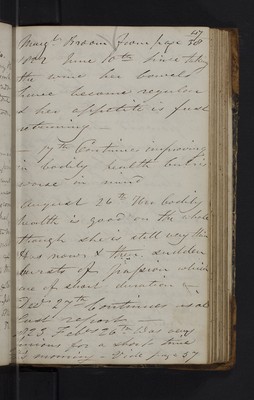 47
Margt Broom from page 38
1822 June 10th Since
the wine her bowels
have become regular
& her appetite is fast
returning —
— 17th Continues improving
in bodily health but is
worse in mind
August 26th Her bodily
health is good on the whole
though she is still very thin
Has now & then sudden
bursts of passion which
are of short duration —
27th Continues as at
last report —
1823 Feby 26th Was very
for a short time
morning — Vide page 57